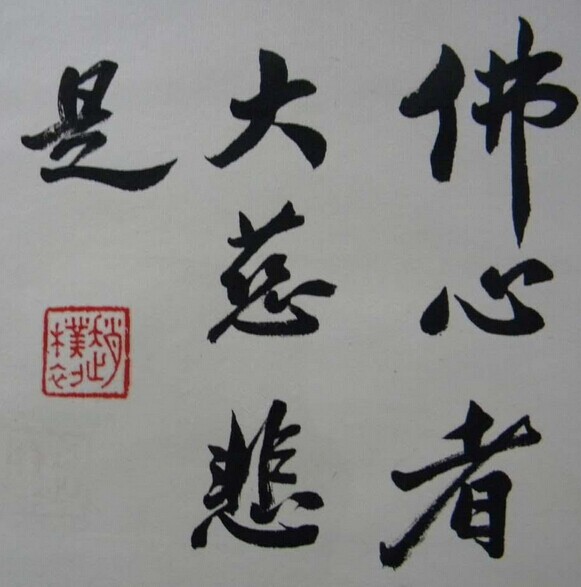 佛心者
大慈悲
是
趙樸初